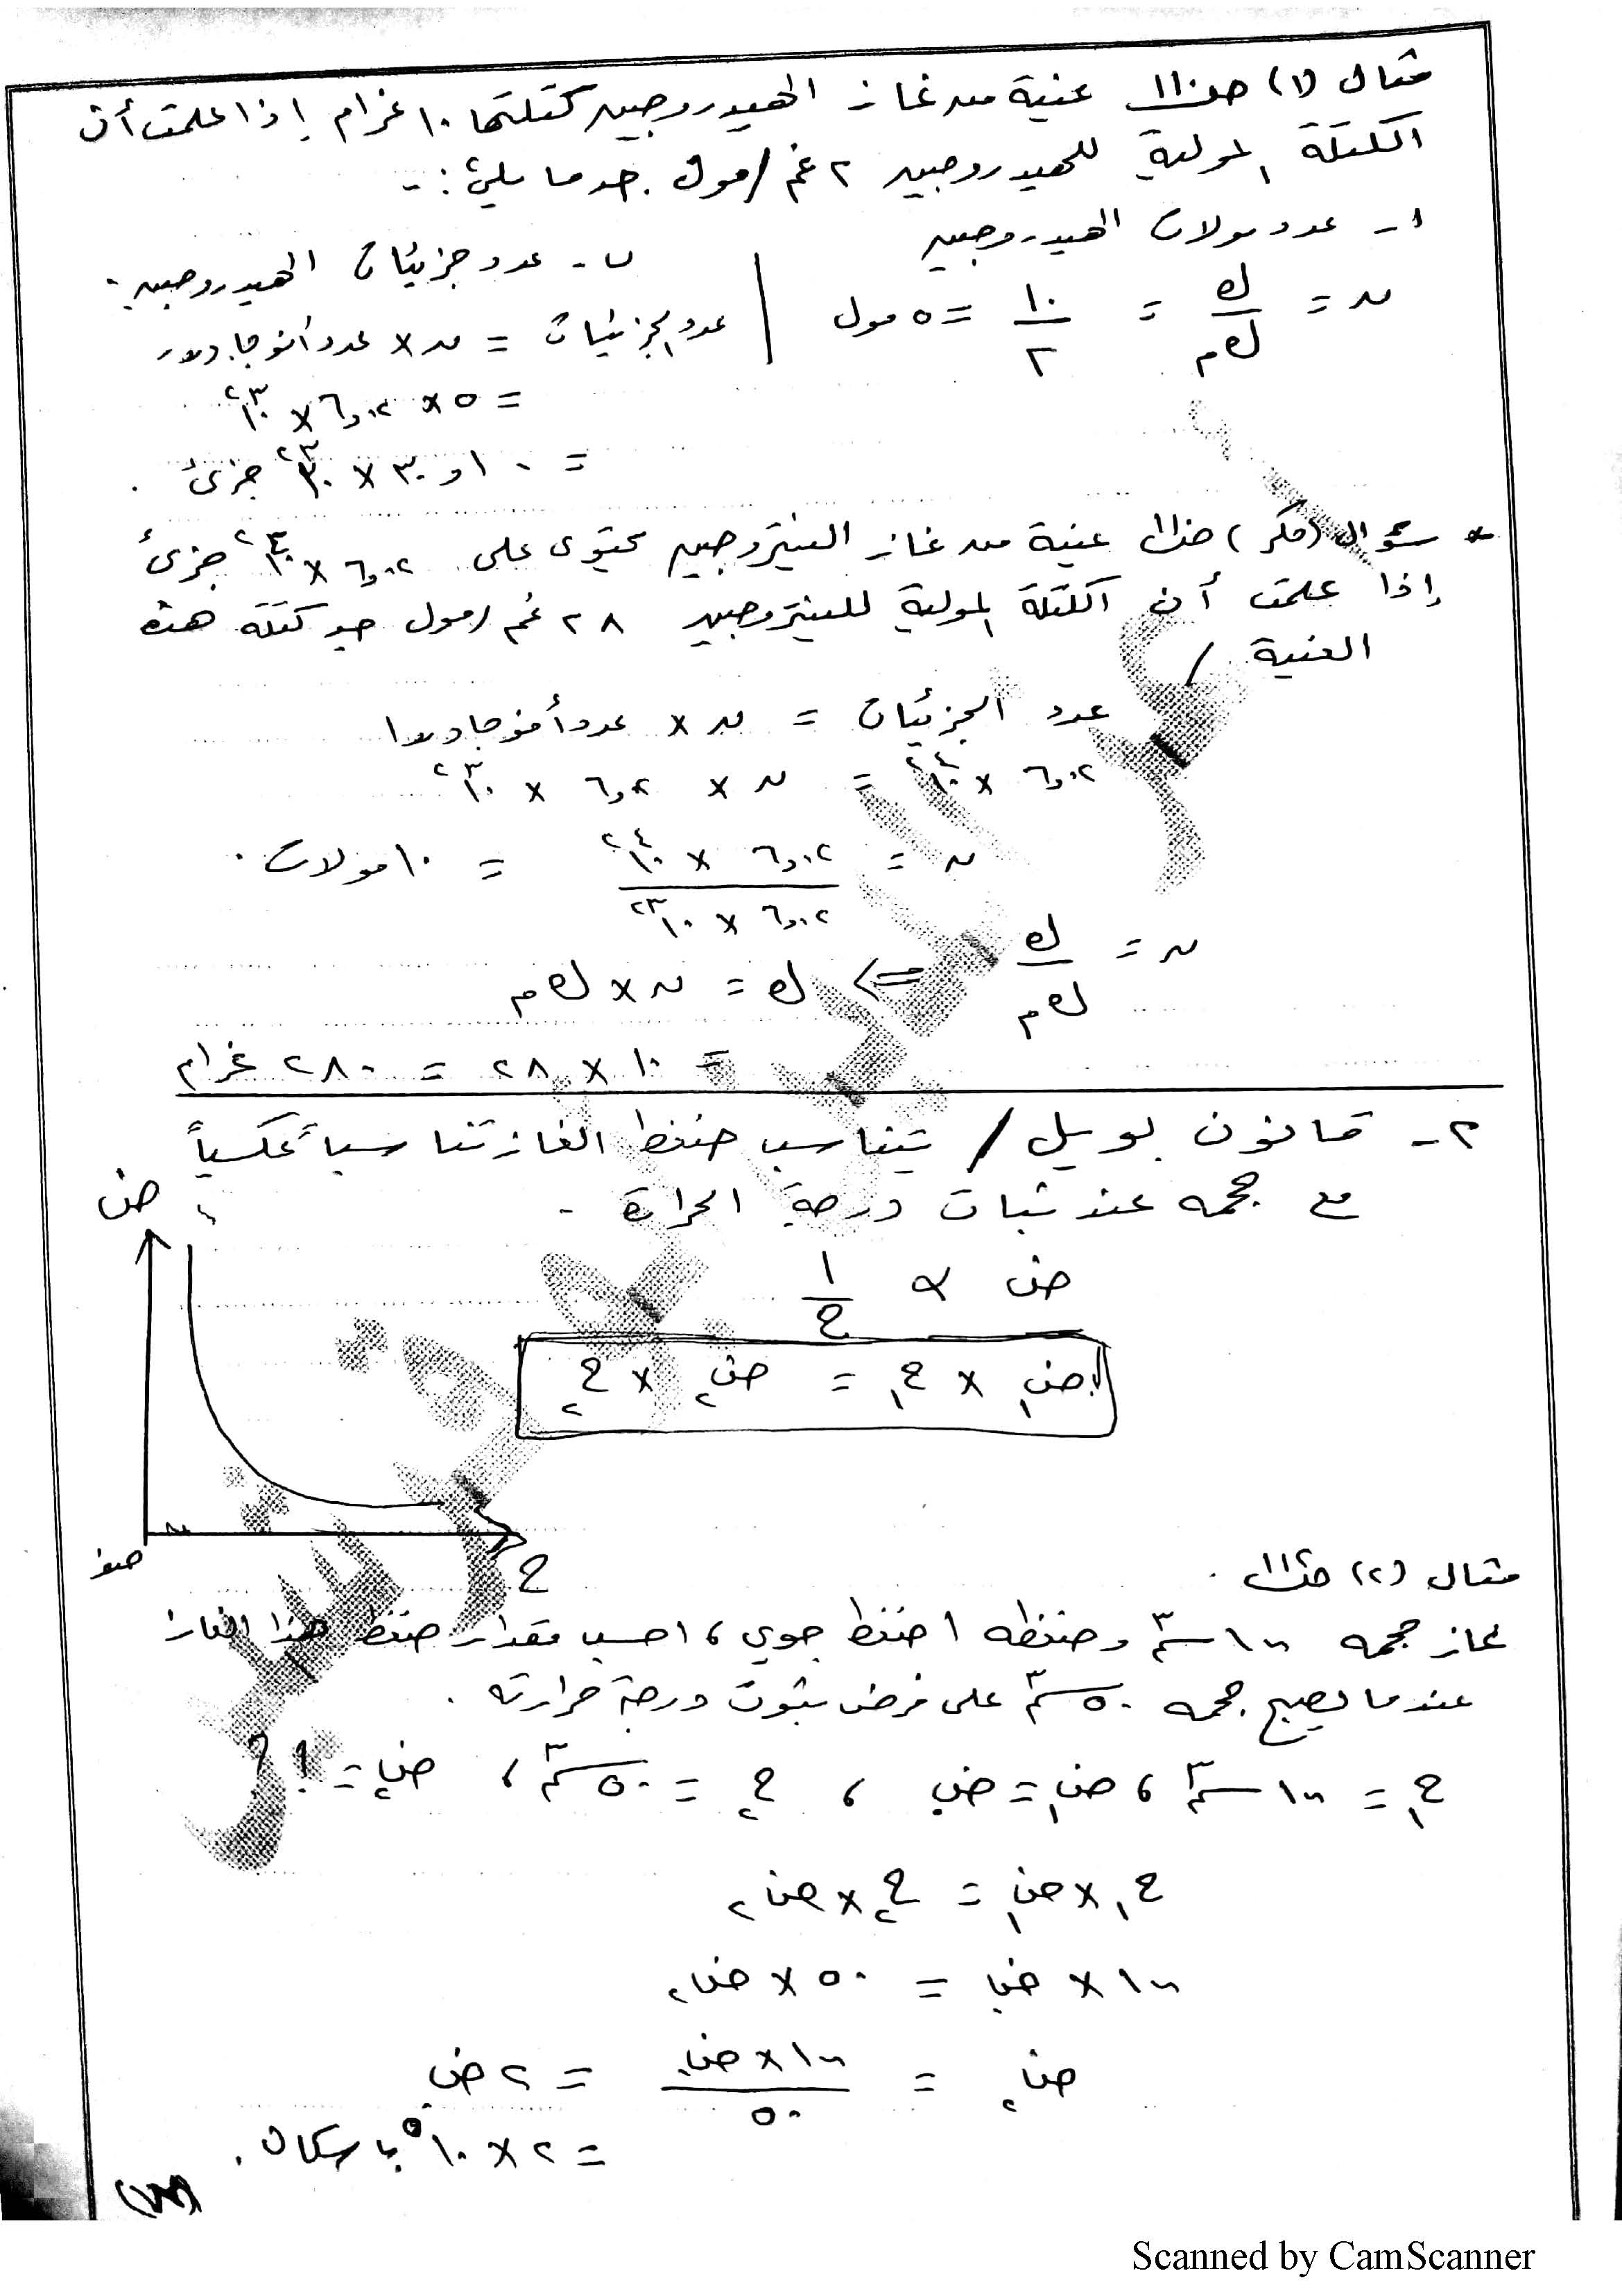 مثال (١) عينة من غاز الهيدروجين كتلتها ١٠ غرام إذا علمت أن
الكتلة المولية للهيدروجين ٢ غم/مول جد ما يلي :-
١- عدد مولات الهيدروجين
ن = ك / ك م = ١٠ / ٢ = ٥ مول
ب- عدد جزيئات الهيدروجين.
عدد الجزيئات = ن × عدد أفوجادرو
= ٥ × ٦,٠٢ × ١٠^٢٣
= ٣٠,١٠ × ١٠^٢٣ جزئ .
* سؤال (فكر) عينة من غاز النيتروجين تحتوي على ٦,٠٢ × ١٠^٢٤ جزئ
إذا علمت أن الكتلة المولية للنيتروجين ٢٨ غم/مول جد كتلة هذه
العينة /
عدد الجزيئات = ن × عدد أفوجادرو
٦,٠٢ × ١٠^٢٤ = ن × ٦,٠٢ × ١٠^٢٣
ن = ٦,٠٢ × ١٠^٢٤ / ٦,٠٢ × ١٠^٢٣ = ١٠ مولات .
ن = ك / ك م => ك = ن × ك م
= ١٠ × ٢٨ = ٢٨٠ غرام
٢- قانون بويل / يتناسب ضغط الغاز تناسباً عكسياً
مع حجمه عند ثبات درجة الحرارة .
ض
ض α ١ / ح
ض١ × ح١ = ض٢ × ح٢
صفر
ح
مثال (٢)
غاز حجمه ١٠٠ سم٣ وضغطه ١ ضغط جوي ، احسب مقدار ضغط هذا الغاز
عندما يصبح حجمه ٥٠ سم٣ على فرض ثبوت درجة حرارته .
ح١ = ١٠٠ سم٣ ، ض١ = ض. ، ح٢ = ٥٠ سم٣ ، ض٢ = ؟؟
ح١ × ض١ = ح٢ × ض٢
١٠٠ × ض. = ٥٠ × ض٢
ض٢ = ١٠٠ × ض. / ٥٠ = ٢ ض.
= ٢ × ١٠^٥ باسكال .
Scanned by CamScanner